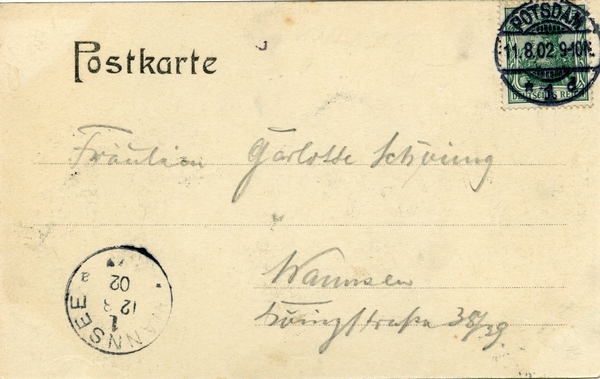 Postkarte
POTSDAM
11.8.02 9-10N.
* 1 d
DEUTSCHES REICH
Fräulein
Wannsee
38/39.
WANNSEE
* a
12 8
02
1